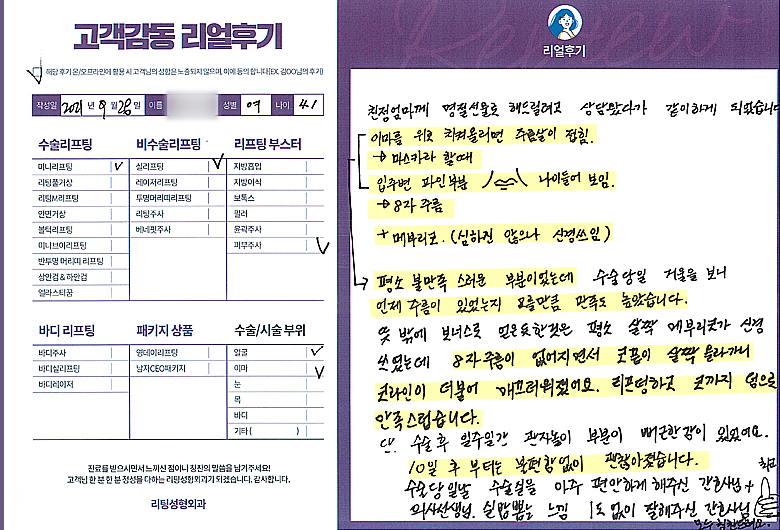 고객감동 리얼후기
해당 후기 온/오프라인에 활용 시 고객님의 성함은 노출되지 않으며, 이에 동의 합니다(EX. 김OO님의 후기)
작성일 2021 년 9 월 28 일 이름 성별 여 나이 41
수술리프팅
미니리프팅 ✓
리팅풀거상
리팅M리프팅
안면거상
볼턱리프팅
미니브이리프팅
반투명 머리띠 리프팅
상안검 & 하안검
얼라스티꿈
비수술리프팅
실리프팅 ✓
레이저리프팅
투명머리띠리프팅
리팅주사
베네핏주사
리프팅 부스터
지방흡입
지방이식
보톡스
필러
윤곽주사
피부주사 ✓
바디 리프팅
바디주사
바디실리프팅
바디레이저
패키지 상품
영데이리프팅
남자CEO패키지
수술/시술 부위
얼굴 ✓
이마 ✓
눈
목
바디
기타 ( )
진료를 받으시면서 느끼신 점이나 칭찬의 말씀을 남겨주세요!
고객님 한 분 한 분 정성을 다하는 리팅성형외과가 되겠습니다. 감사합니다.
리팅성형외과
Review
리얼후기
친정엄마께 명절선물로 해드릴려고 상담왔다가 같이하게 되었습니다
이마를 위로 치켜올리면 주름살이 접힘.
→ 마스카라 할때
입주변 파인부분 나이들어 보임.
→ 8자 주름
+ 메부리코. (심하진 않으나 신경쓰임)
평소 불만족 스러운 부분이었는데 수술당일 거울을 보니
언제 주름이 있었는지 모를만큼 만족도 높았습니다.
뜻 밖에 보너스로 얻은듯한것은 평소 살짝 메부리코가 신경
쓰였는데 8자주름이 없어지면서 코끝이 살짝 올라가니
코라인이 더불어 매끄러워졌어요. 리프팅하고 코까지 덤으로
만족스럽습니다.
단. 수술 후 일주일간 관자놀이 부분이 뻐근한감이 있었어요.
10일 후 부터는 불편함없이 괜찮아졌습니다.
수술당일날 수술실을 아주 편안하게 해주신 간호사님 +
의사선생님. 실밥뽑는 느낌 1도 없이 잘해주신 간호사님